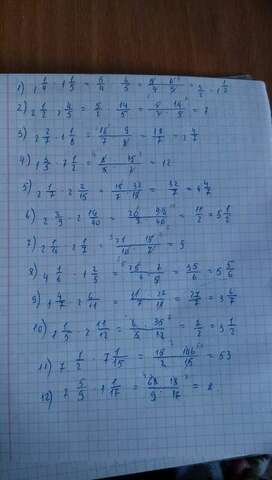 1) 1 1/4 · 1 1/5 = 5/4 · 6/5 = 5/4 · 6/5 = 3/2 = 1 1/2
2) 2 1/2 · 2 4/5 = 5/2 · 14/5 = 5/2 · 14/5 = 7
3) 2 2/7 · 1 1/8 = 16/7 · 9/8 = 18/7 = 2 4/7
4) 1 3/5 · 7 1/2 = 8/5 · 15/2 = 12
5) 2 1/7 · 2 2/15 = 15/7 · 32/15 = 32/7 = 4 4/7
6) 2 2/9 · 2 19/40 = 20/9 · 99/40 = 11/2 = 5 1/2
7) 2 1/10 · 2 1/7 = 21/10 · 15/7
8) 4 1/6 · 1 2/5 = 25/6 · 7/5 = 35/6 = 5 5/6
9) 1 4/7 · 2 5/11 = 11/7 · 27/11 = 27/7 = 3 6/7
10) 1 1/5 · 2 11/12 = 6/5 · 35/12 = 7/2 = 3 1/2
11) 7 1/2 · 7 1/15 = 15/2 · 106/15 = 53
12) 2 5/9 · 1 1/17 = 23/9 · 18/17